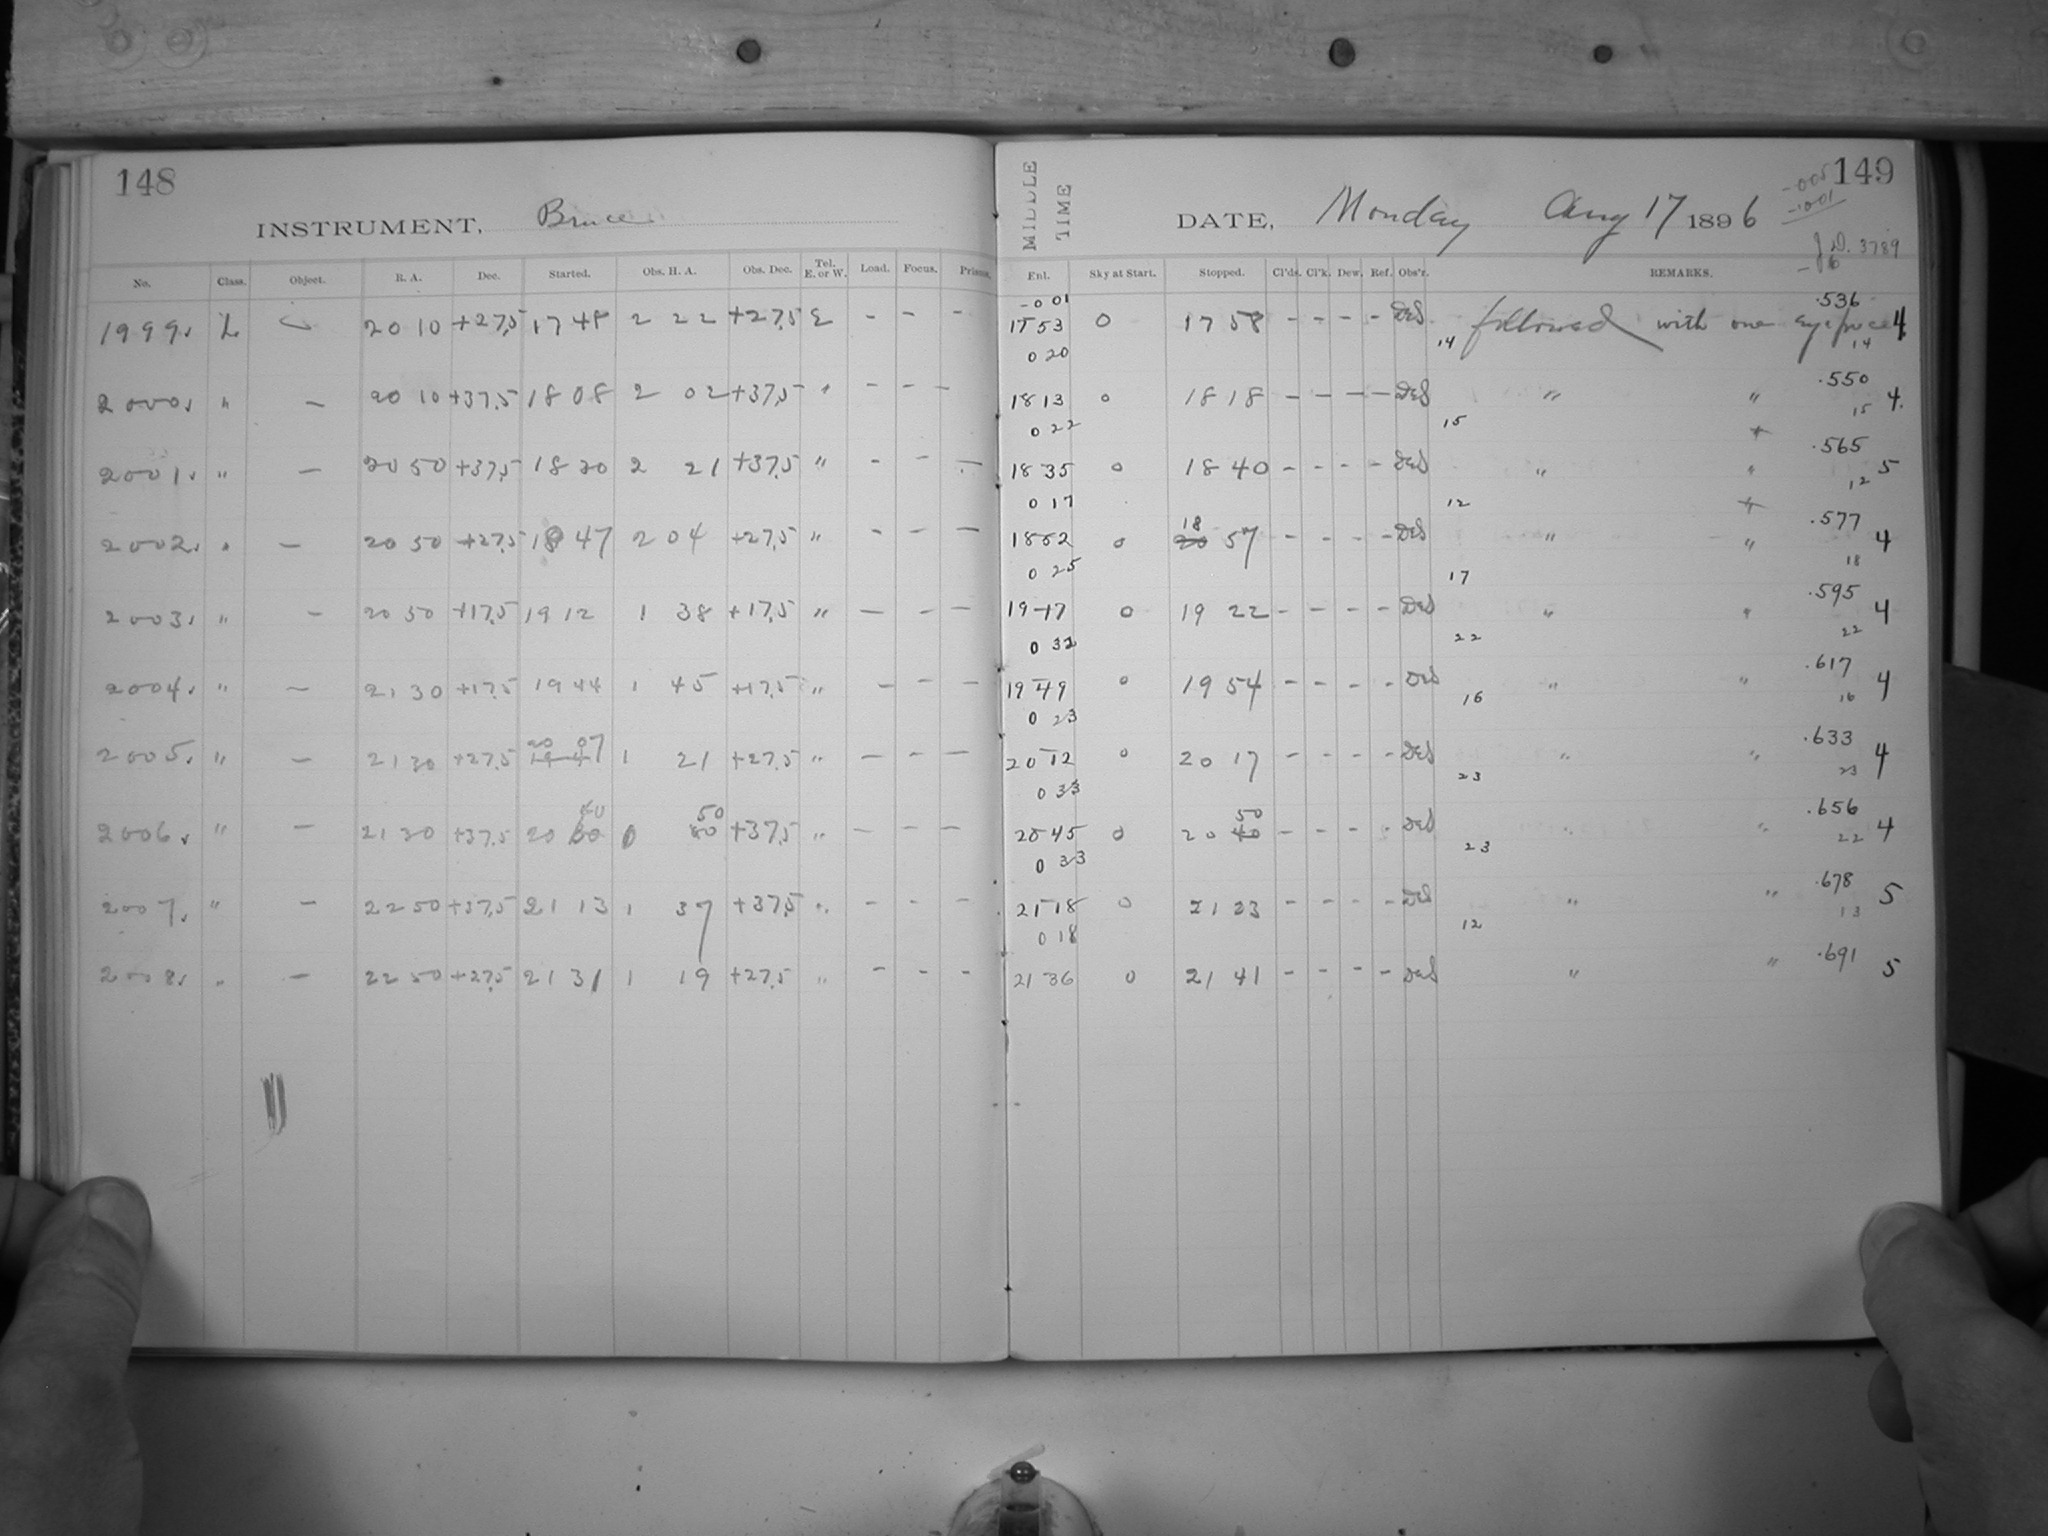 148
INSTRUMENT, Bruce
No. Class. Object. R. A. Dec. Started. Obs. H. A. Obs. Dec. Tel. E. or W. Load. Focus. Prisms.
1999. L 20 10 +27.5 17 48 2 22 +27.5 E - - -
2000. " - 20 10 +37.5 18 08 2 02 +37.5 " - - -
2001. " - 20 50 +37.5 18 30 2 21 +37.5 " - - -
2002. " - 20 50 +27.5 18 47 2 04 +27.5 " - - -
2003. " - 20 50 +17.5 19 12 1 38 +17.5 " - - -
2004. " - 21 30 +17.5 19 44 1 45 +17.5 " - - -
20 07
2005. " - 21 30 +27.5 1 21 +27.5 " - - -
40 50
2006. " - 21 30 +37.5 20 0 +37.5 " - - -
2007. " - 22 50 +37.5 21 13 1 37 +37.5 " - - -
2008. " - 22 50 +27.5 21 31 1 19 +27.5 " - - -
MIDDLE TIME
DATE, Monday Aug 17 1896
149
-005
-1001
J.D. 3789
-6
Enl. Sky at Start. Stopped. Cl'ds. Cl'k. Dew. Ref. Obs'r. REMARKS.
-001 .536
17 53 0 17 58 - - - - DES followed with one eyepiece 4
0 20 14 14
.550
18 13 0 18 18 - - - - DES " " 4
0 22 15 15
.565
18 35 0 18 40 - - - DES " " 5
0 17 12 12
18 .577
18 52 0 20 57 - - - - DES " " 4
0 25 17 18
.595
19 17 0 19 22 - - - - DES " " 4
0 32 22 22
.617
19 49 0 19 54 - - - - DES " " 4
0 23 16 16
.633
20 12 0 20 17 - - - - DES " " 4
0 33 23 23
50 .656
20 45 0 20 40 - - - - DES " " 4
0 33 23 22
.678
21 18 0 21 23 - - - - DES " " 5
0 18 12 13
.691
21 36 0 21 41 - - - - DES " " 5